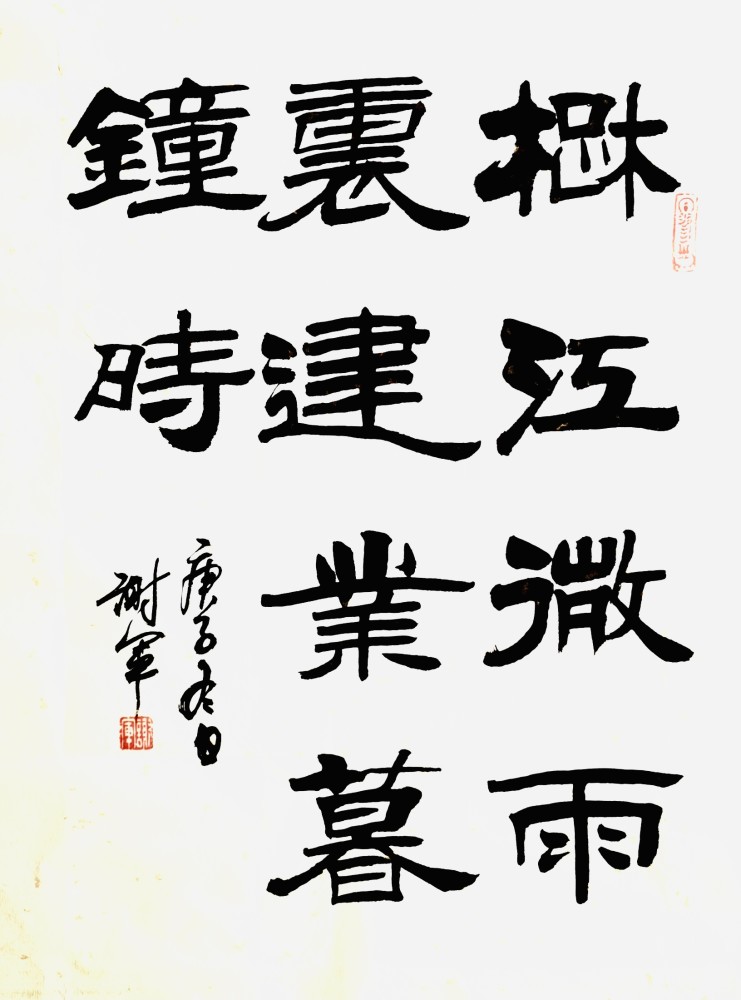 楚江微雨
裏建業暮
鐘時
庚子冬日
謝軍